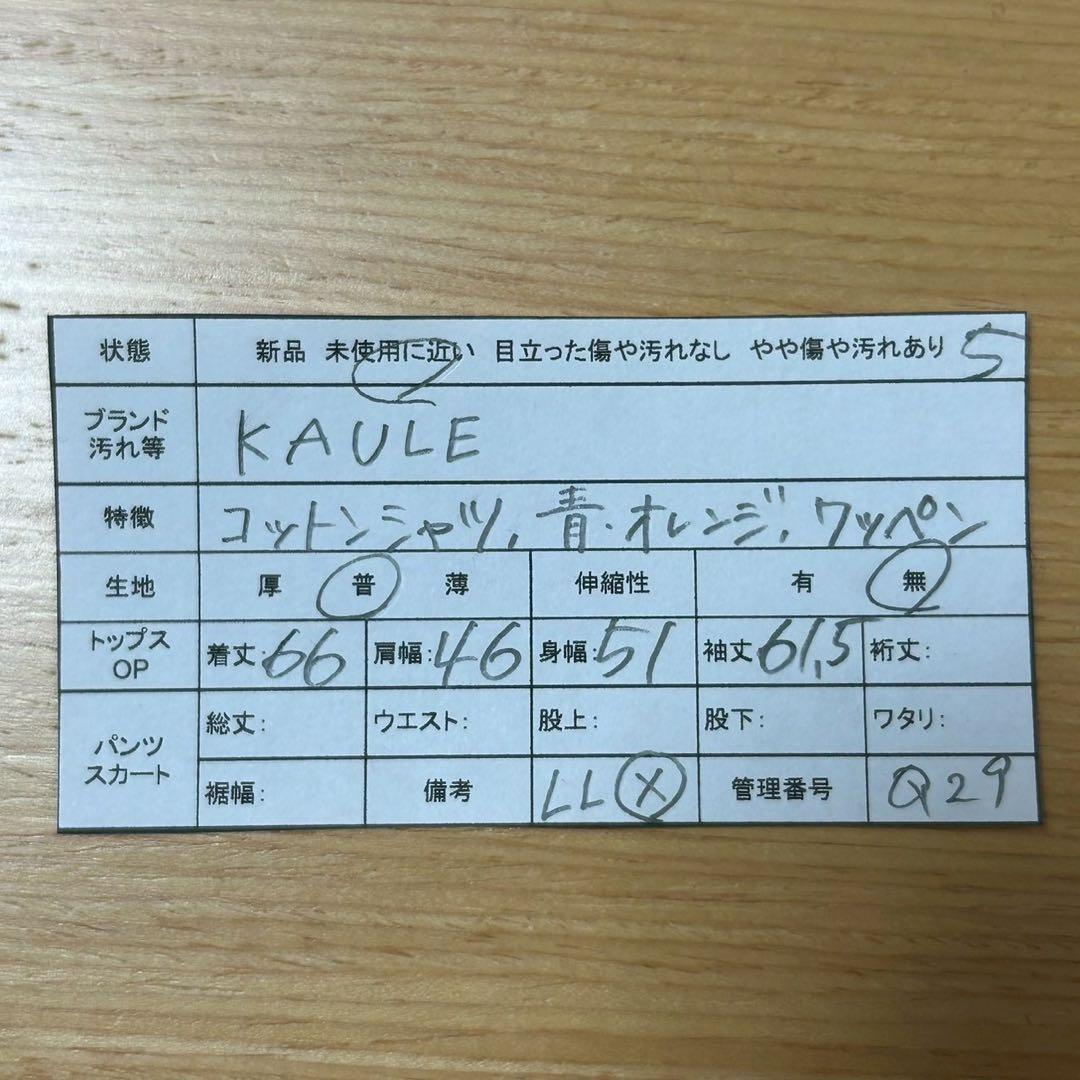 状態 新品 未使用に近い 目立った傷や汚れなし やや傷や汚れあり 5
ブランド
汚れ等
KAULE
特徴 コットンシャツ, 青・オレンジ, ワッペン
生地 厚 普 薄 伸縮性 有 無
トップス
OP
着丈:66 肩幅:46 身幅:51 袖丈61,5 裄丈:
パンツ
スカート
総丈: ウエスト: 股上: 股下: ワタリ:
裾幅: 備考 LL X 管理番号 Q29